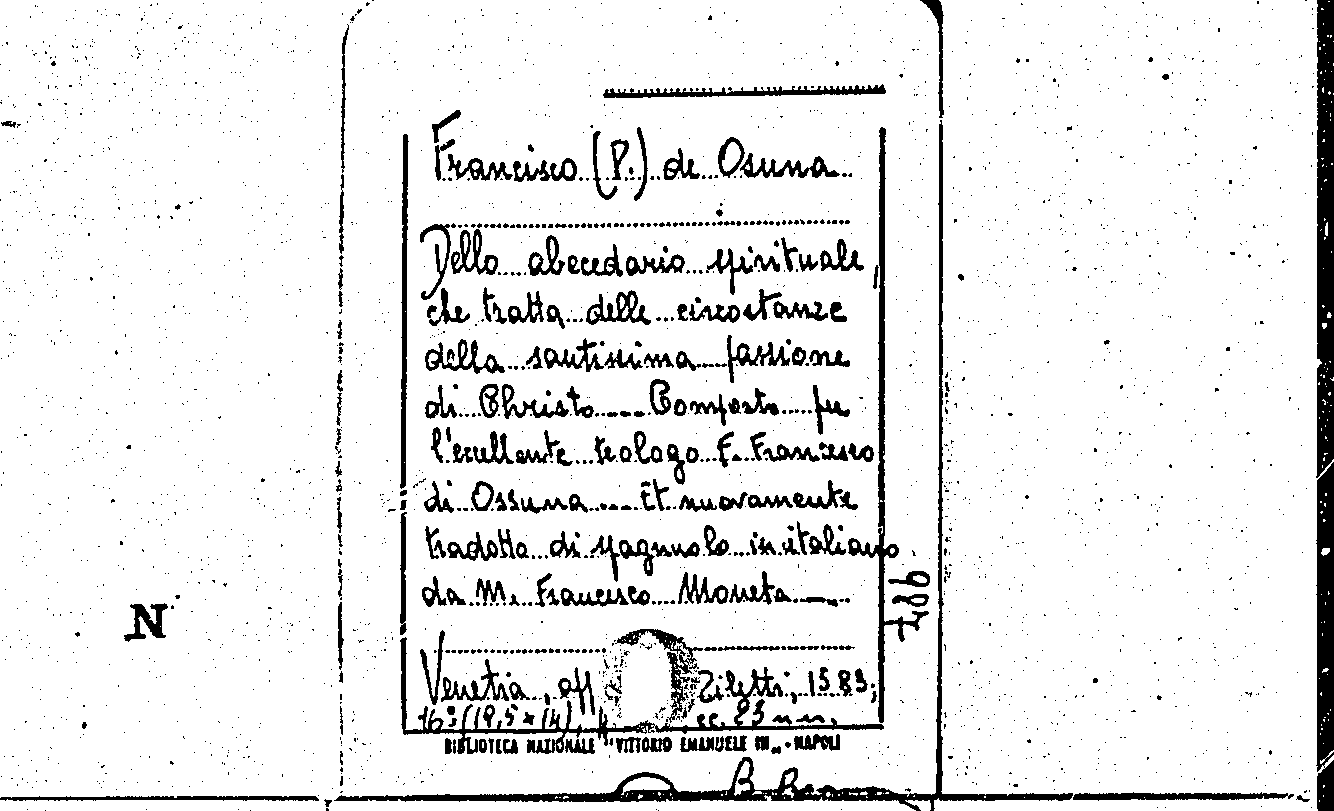 Francisco (P.) de Osuna
Dello abecedario spirituale,
che tratta delle circostanze
della santissima passione
di Christo ... Composto per
l'eccellente teologo F. Francesco
di Ossuna ... Et nuovamente
tradotto di spagnuolo in italiano
da M. Francesco Moneta ...
N
Venetia, off Ziletti, 1583;
16° (19,5 x 14), cc. 23 nn.
BIBLIOTECA NAZIONALE "VITTORIO EMANUELE III" - NAPOLI
B.